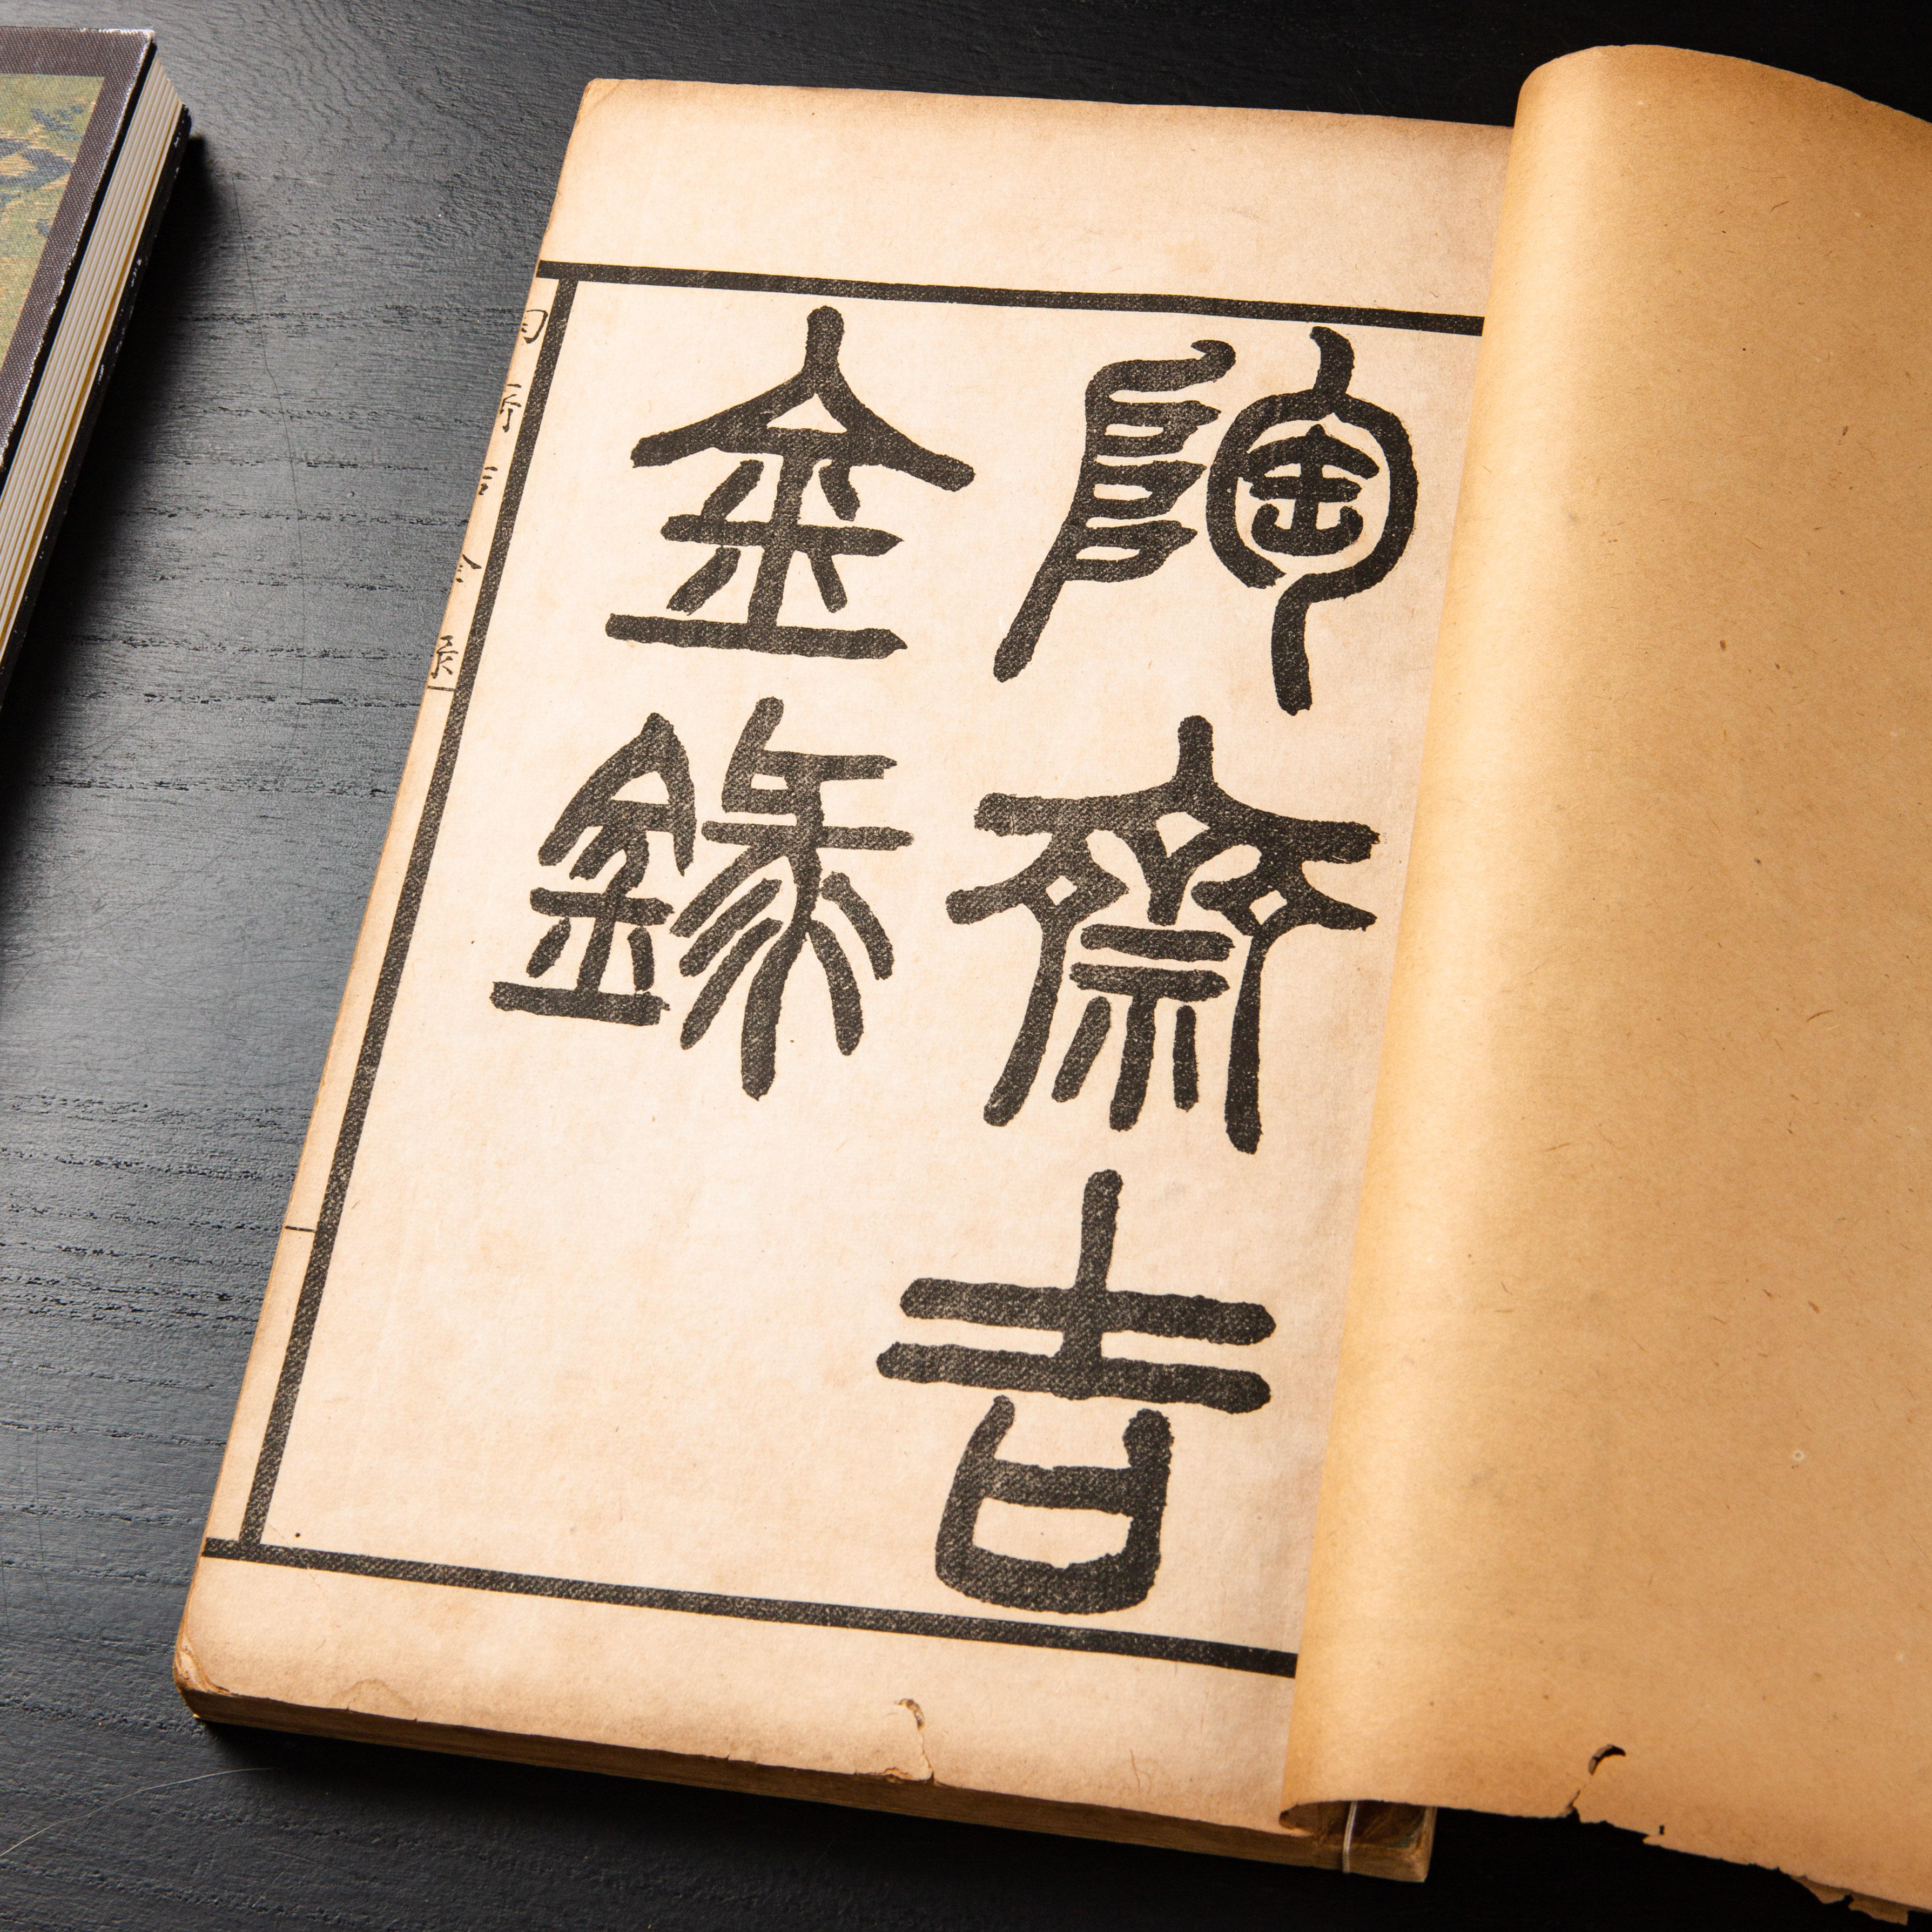 陶齋吉
金錄